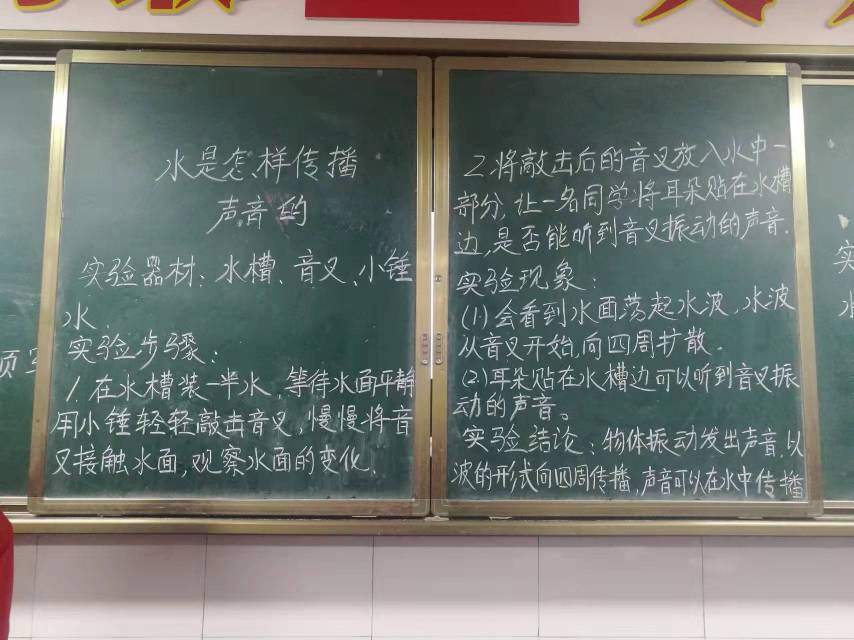 水是怎样传播
声音的
实验器材：水槽、音叉、小锤
水.
实验步骤：
1. 在水槽装一半水，等待水面平静
用小锤轻轻敲击音叉，慢慢将音
叉接触水面，观察水面的变化.
2.将敲击后的音叉放入水中一
部分，让一名同学将耳朵贴在水槽
边，是否能听到音叉振动的声音.
实验现象：
(1)会看到水面荡起水波，水波
从音叉开始，向四周扩散.
(2)耳朵贴在水槽边可以听到音叉振
动的声音。
实验结论：物体振动发出声音，以
波的形式向四周传播，声音可以在水中传播
实
水